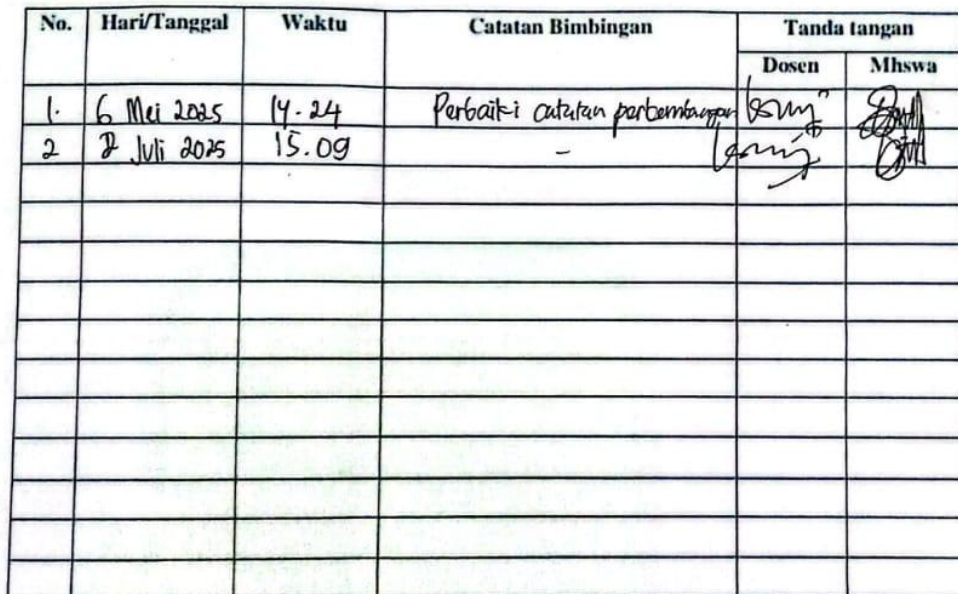 No. Hari/Tanggal Waktu Catatan Bimbingan Tanda tangan
Dosen Mhswa
1. 6 Mei 2025 14.24 Perbaiki catatan perkembangan
2 Juli 2025 15.09 -